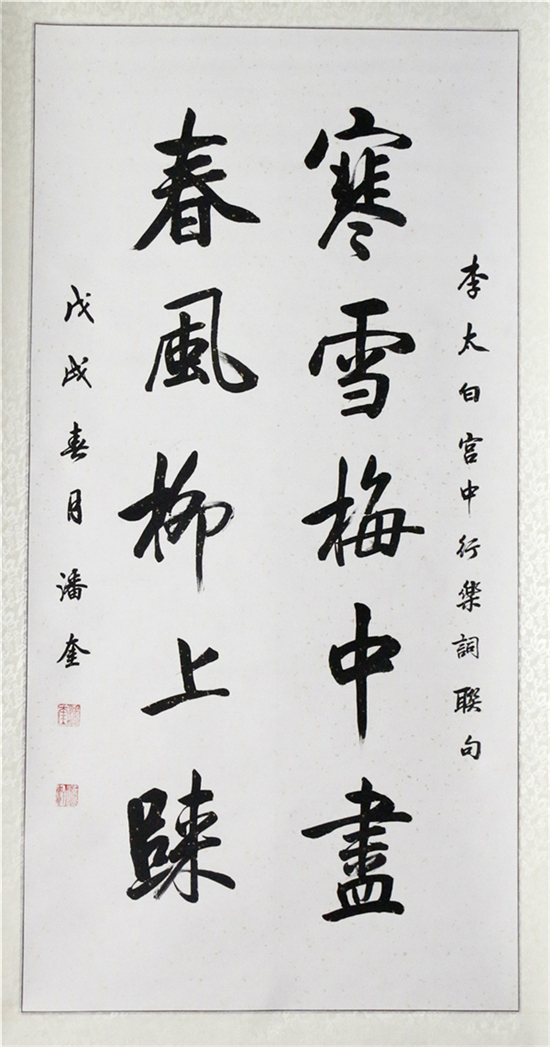 李太白宫中行樂詞聯句
寒雪梅中盡
春風柳上歸
戊戌春月潘奎